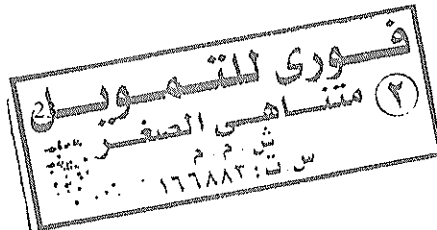 فورى للتمويل
٢ متناهى الصغر
ش.م.م
س.ت: ١٦٦٨٨٣